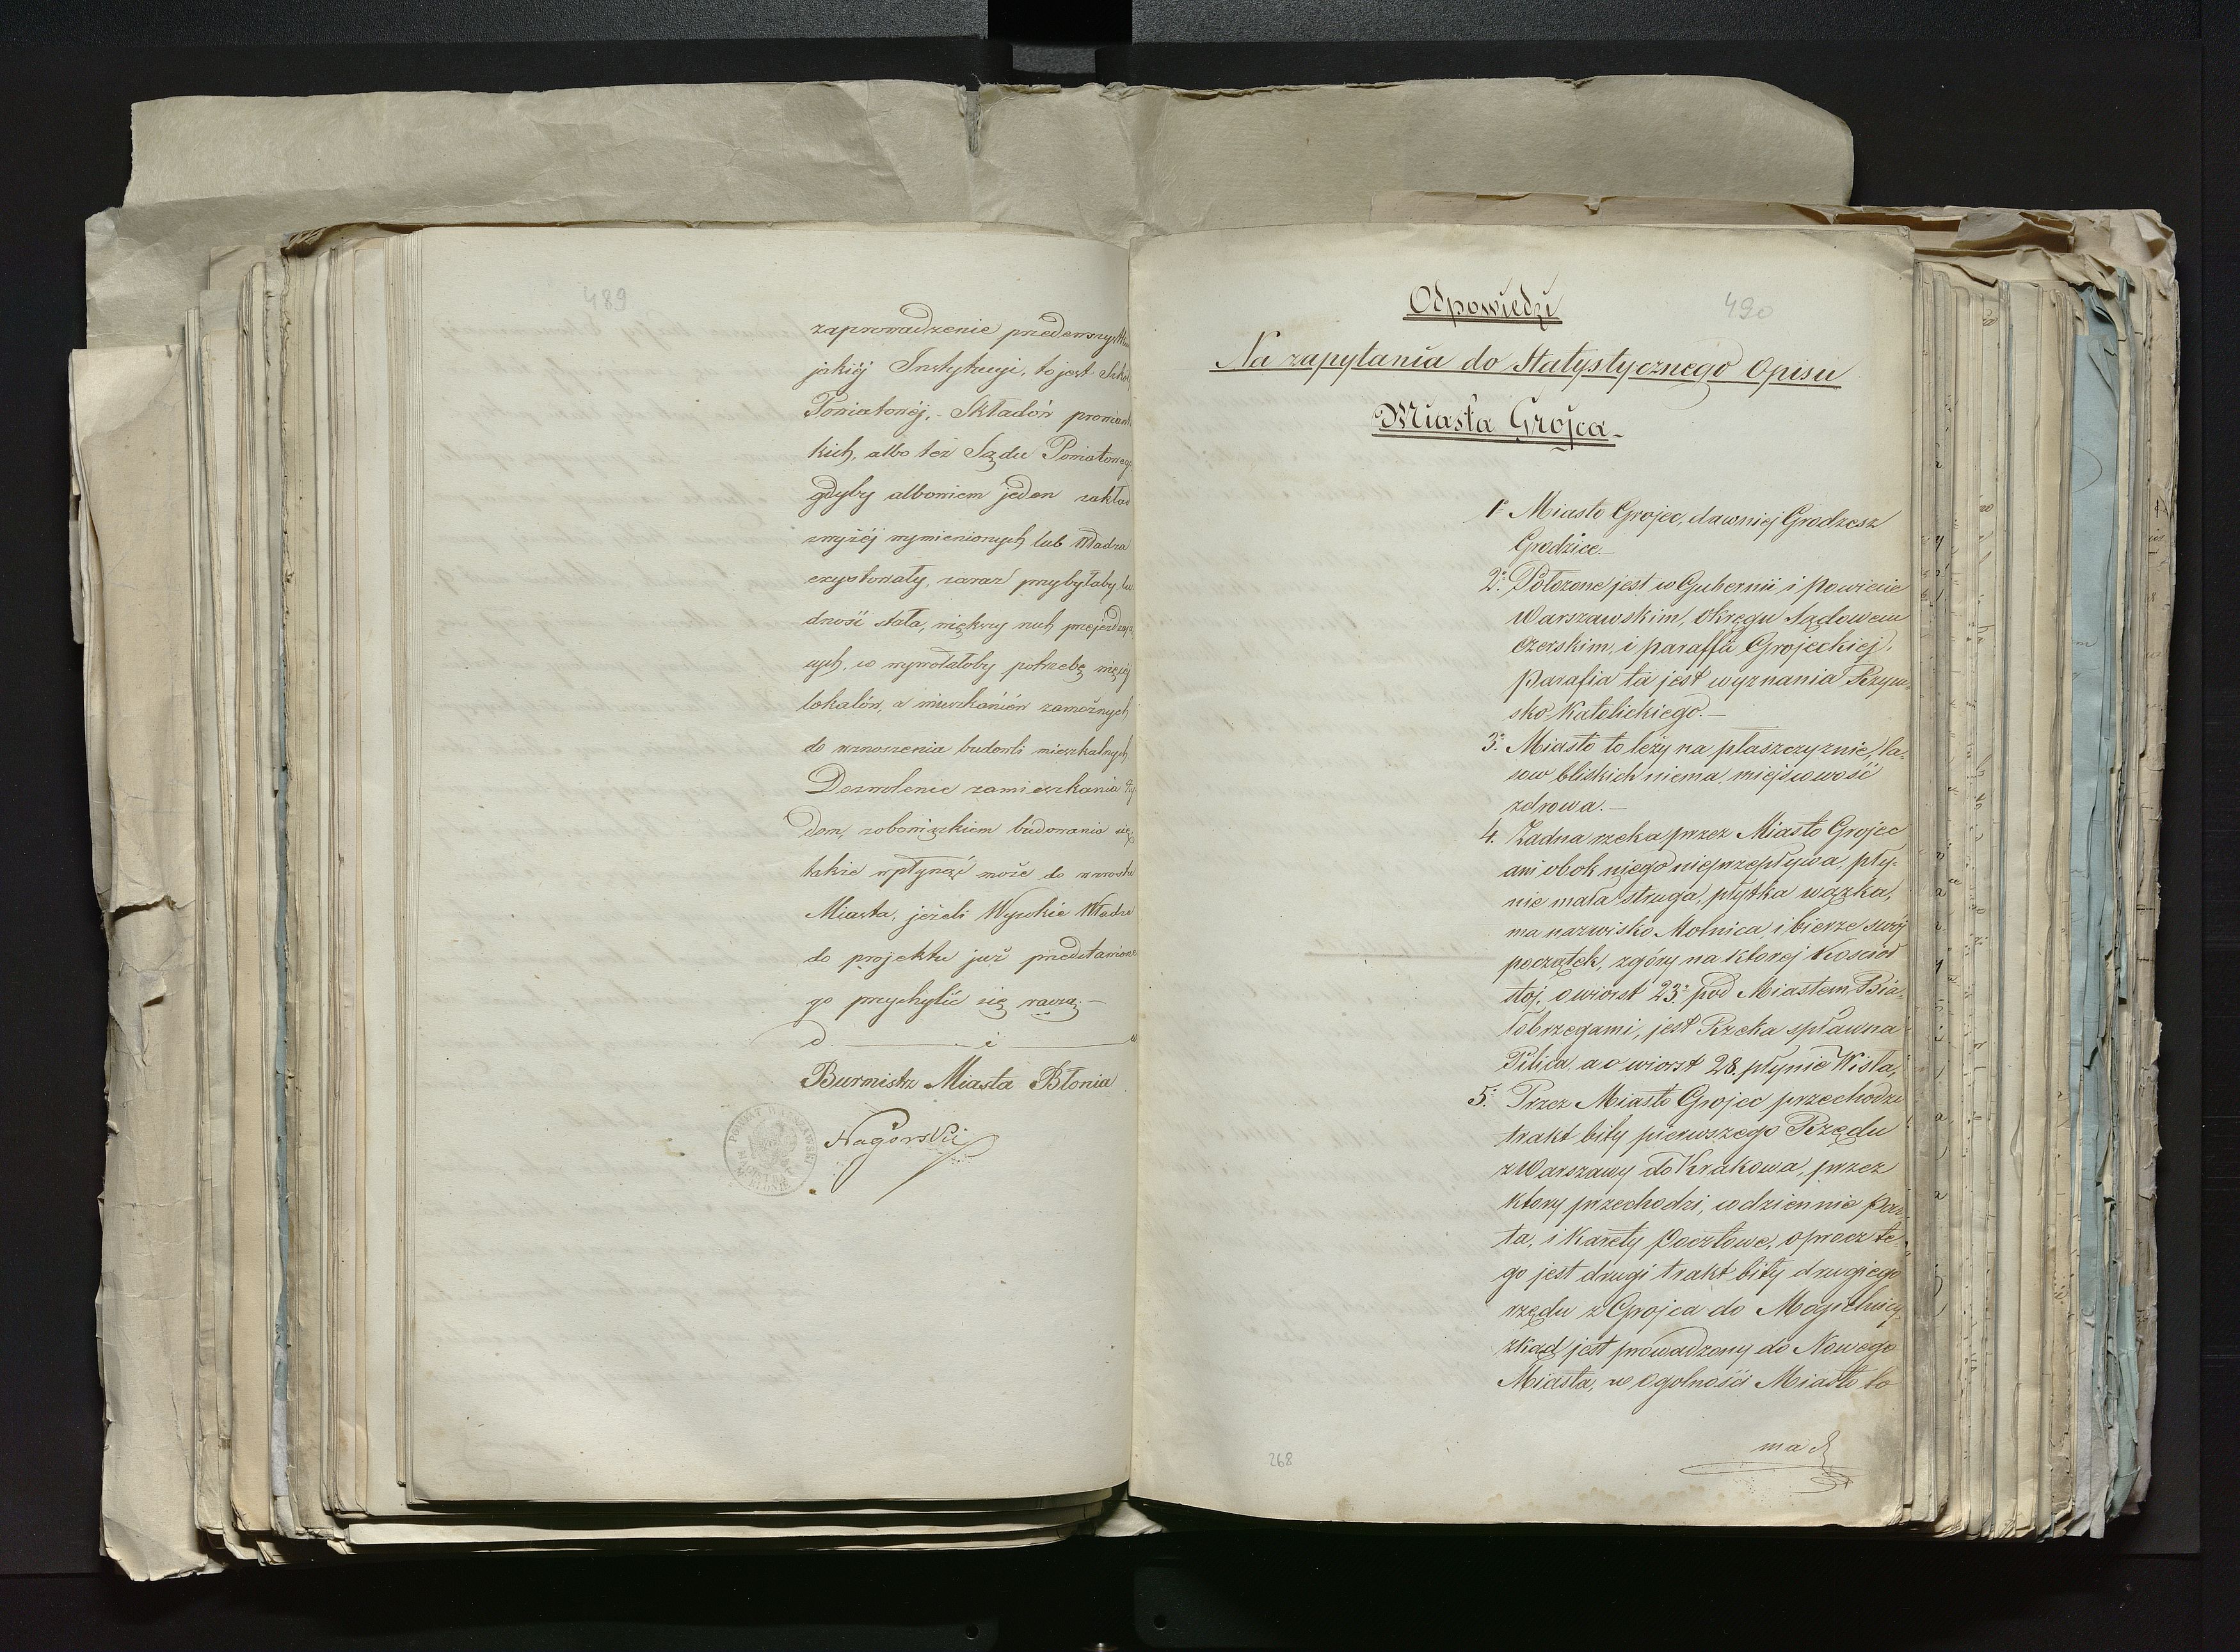 489
zaprowadzenie przedewszystkiem
jakiéj Instytucyi, to jest Szkoł
Powiatowéj, - Składów prowiants
kich, albo też Sądu Powiatowego
gdyby albowiem jeden zakład
wyżéj wymienionych lub Władza
exystowały, zaraz przybyłaby lu
dność stała, większy ruch przejezdzają
cych, co wywołałoby potrzebę więcéj
lokalów, a mieszkańców zamożnych
do wznoszenia budowli mieszkalnych
Dozwolenie zamieszkania Ży
dom, z obowiązkiem budowania się,
także wpłynąć może do wzrostu
Miasta, jeżeli Wysokie Władze
do projektu już przedstawione
go przychylić się raczą. -
Burmistrz Miasta Błonia
Nagórski
POWIAT WARSZAWSKI
490
Odpowiedzi
Na zapytania do Statystycznego Opisu
Miasta Grójca -
1o Miasto Grojec, dawniej Grodzesz
Grodziec. -
2o. Położone jest w Gubernii i Powiecie
Warszawskim, Okręgu Sądowem
Czerskim, i paraffii Grojeckiej.
Parafia ta jest wyznania Rzym-
sko Katolickiego. -
3o. Miasto to leży na płaszczyznie, la-
sow bliskich niema, miejscowość
zdrowa. -
4. Żadna rzeka przez Miasto Grojec
ani obok niego nieprzepływa, pły-
nie mała struga, płytka wązka,
ma nazwisko Molnica i bierze swój
początek, z góry na ktorej Kosciół
stoj, o wiorst 23. pod Miastem Bia-
łobrzegami, jest Rzeka spławna
Pilica, a o wiorst 28. płynie Wisła,
5. Przez Miasto Grojec przechodzi
trakt bity pierwszego Rzędu
z Warszawy do Krakowa, przez
ktory przechodzi, codziennie Pocz
ta, i Karety Pocztowe, oprocz te-
go jest drugi trakt bity drugiego
rzędu z Grojca do Mogielnicy
zkąd jest prowadzony do Nowego
Miasta, w ogolności Miasto to
ma
268